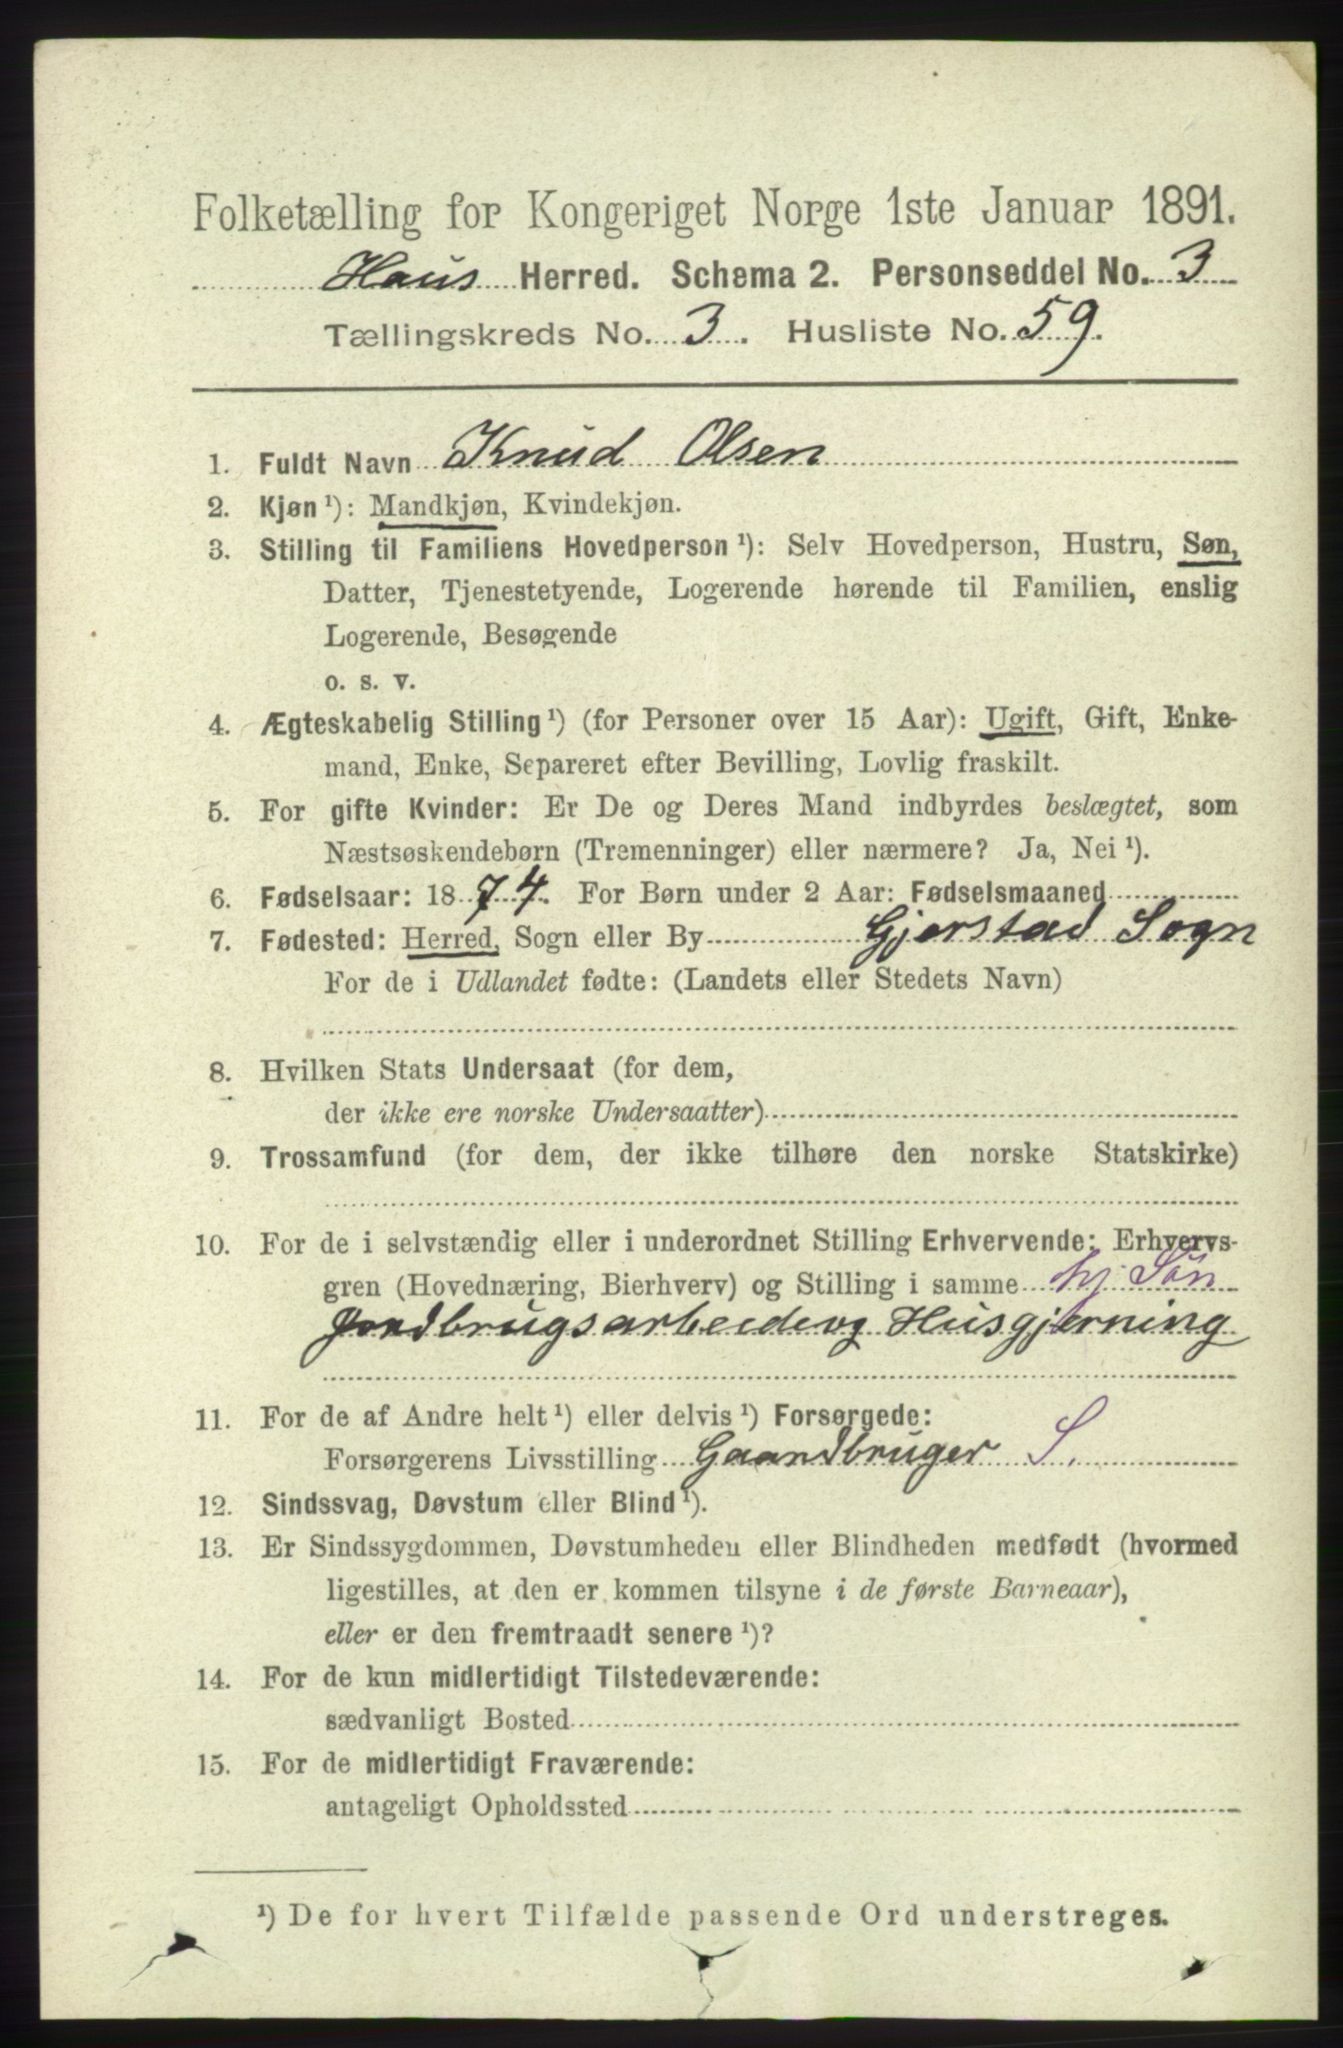 Folketælling for Kongeriget Norge 1ste Januar 1891.
Haus Herred. Schema 2. Personseddel No. 3
Tællingskreds No. 3. Husliste No. 59.
1. Fuldt Navn Knud Olsen
2. Kjøn ¹): Mandkjøn, Kvindekjøn.
3. Stilling til Familiens Hovedperson ¹): Selv Hovedperson, Hustru, Søn,
Datter, Tjenestetyende, Logerende hørende til Familien, enslig
Logerende, Besøgende
o. s. v.
4. Ægteskabelig Stilling ¹) (for Personer over 15 Aar): Ugift, Gift, Enke-
mand, Enke, Separeret efter Bevilling, Lovlig fraskilt.
5. For gifte Kvinder: Er De og Deres Mand indbyrdes beslægtet, som
Næstsøskendebørn (Tremenninger) eller nærmere? Ja, Nei ¹).
6. Fødselsaar: 1874. For Børn under 2 Aar: Fødselsmaaned
7. Fødested: Herred, Sogn eller By Gjerstad Sogn
For de i Udlandet fødte: (Landets eller Stedets Navn)
8. Hvilken Stats Undersaat (for dem,
der ikke ere norske Undersaatter)
9. Trossamfund (for dem, der ikke tilhøre den norske Statskirke)
10. For de i selvstændig eller i underordnet Stilling Erhvervende: Erhvervs-
gren (Hovednæring, Bierhverv) og Stilling i samme hj. Søn
Jordbrugsarbeide og Husgjerning
11. For de af Andre helt ¹) eller delvis ¹) Forsørgede:
Forsørgerens Livsstilling Gaardbruger S.
12. Sindssvag, Døvstum eller Blind ¹).
13. Er Sindssygdommen, Døvstumheden eller Blindheden medfødt (hvormed
ligestilles, at den er kommen tilsyne i de første Barneaar),
eller er den fremtraadt senere ¹)?
14. For de kun midlertidigt Tilstedeværende:
sædvanligt Bosted
15. For de midlertidigt Fraværende:
antageligt Opholdssted
¹) De for hvert Tilfælde passende Ord understreges.